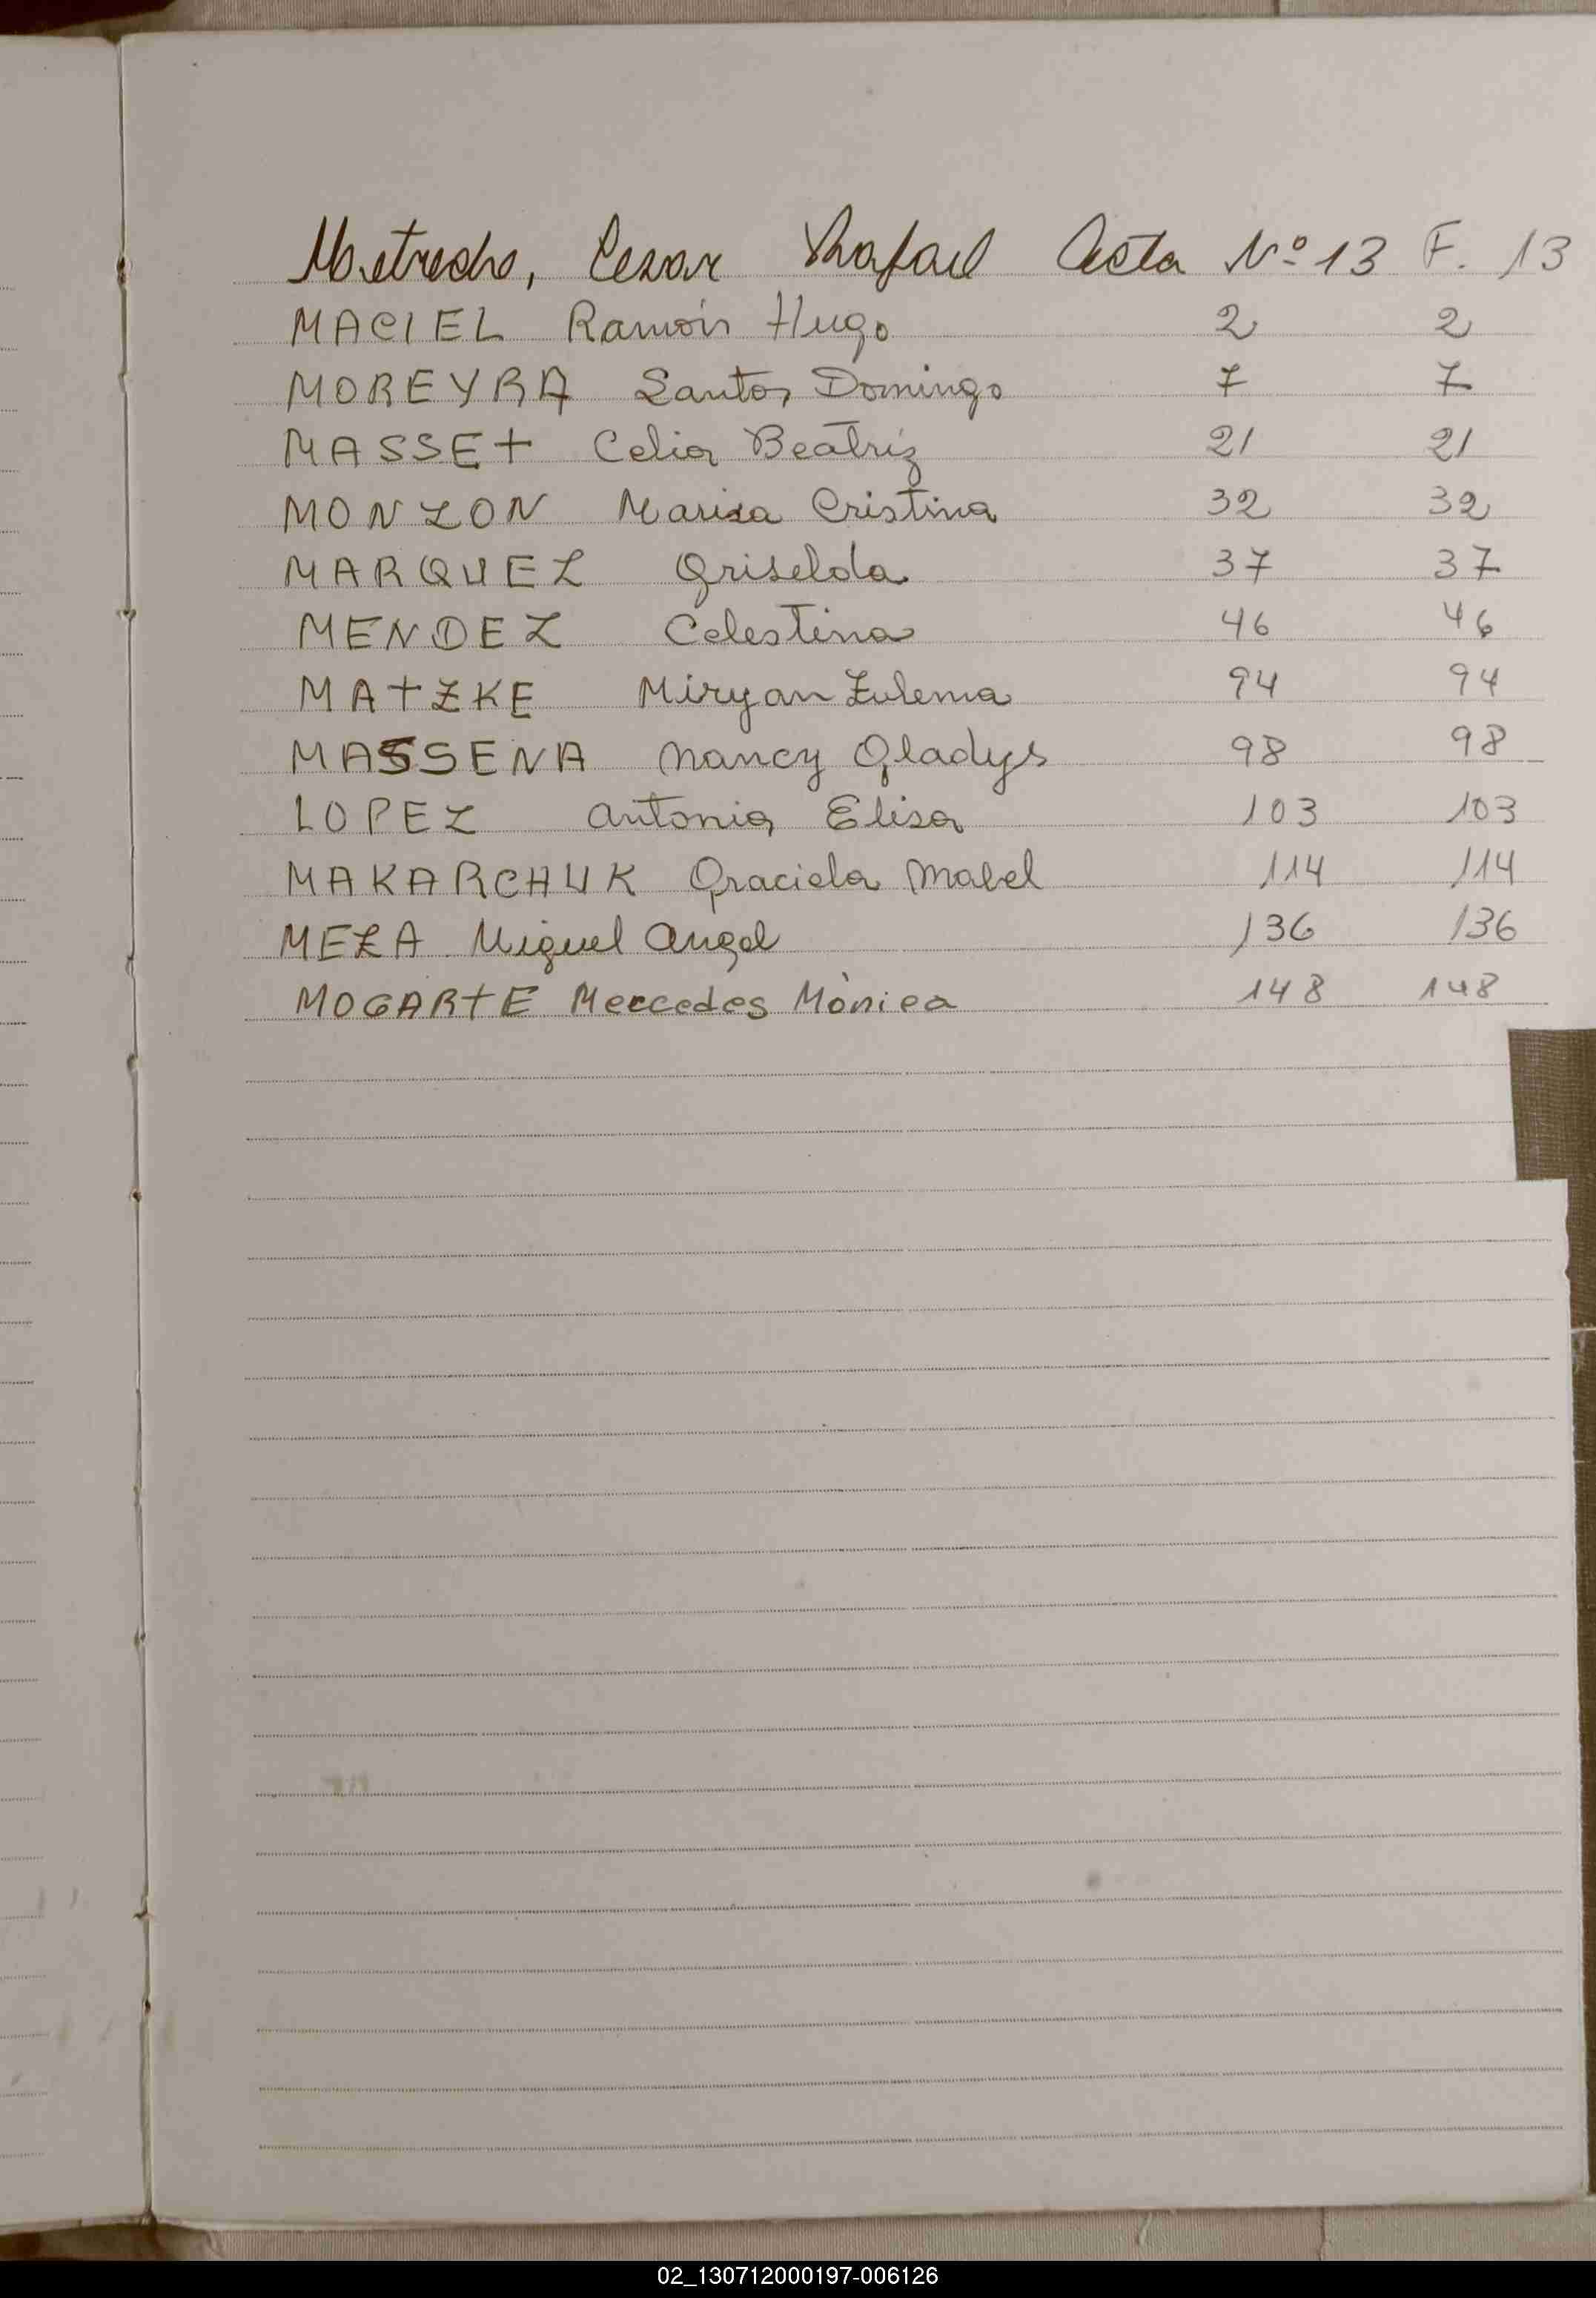 Cesar Rafael Acta Nº 13 F. 13
MACIEL Ramón Hugo 2 2
MOREYRA Santos Domingo 7 7
MASSET Celia Beatriz 21 21
MONZON Marisa Cristina 32 32
MARQUEZ Griselda 37 37
MENDEZ Celestina 46 46
MATZKE Miryan Zulema 94 94
MASSENA Nancy Gladys 98 98
LOPEZ Antonia Elisa 103 103
MAKARCHUK Graciela Mabel 114 114
MEZA Miguel Angel 136 136
MOGARTE Mercedes Mònica 148 148
02_130712000197-006126